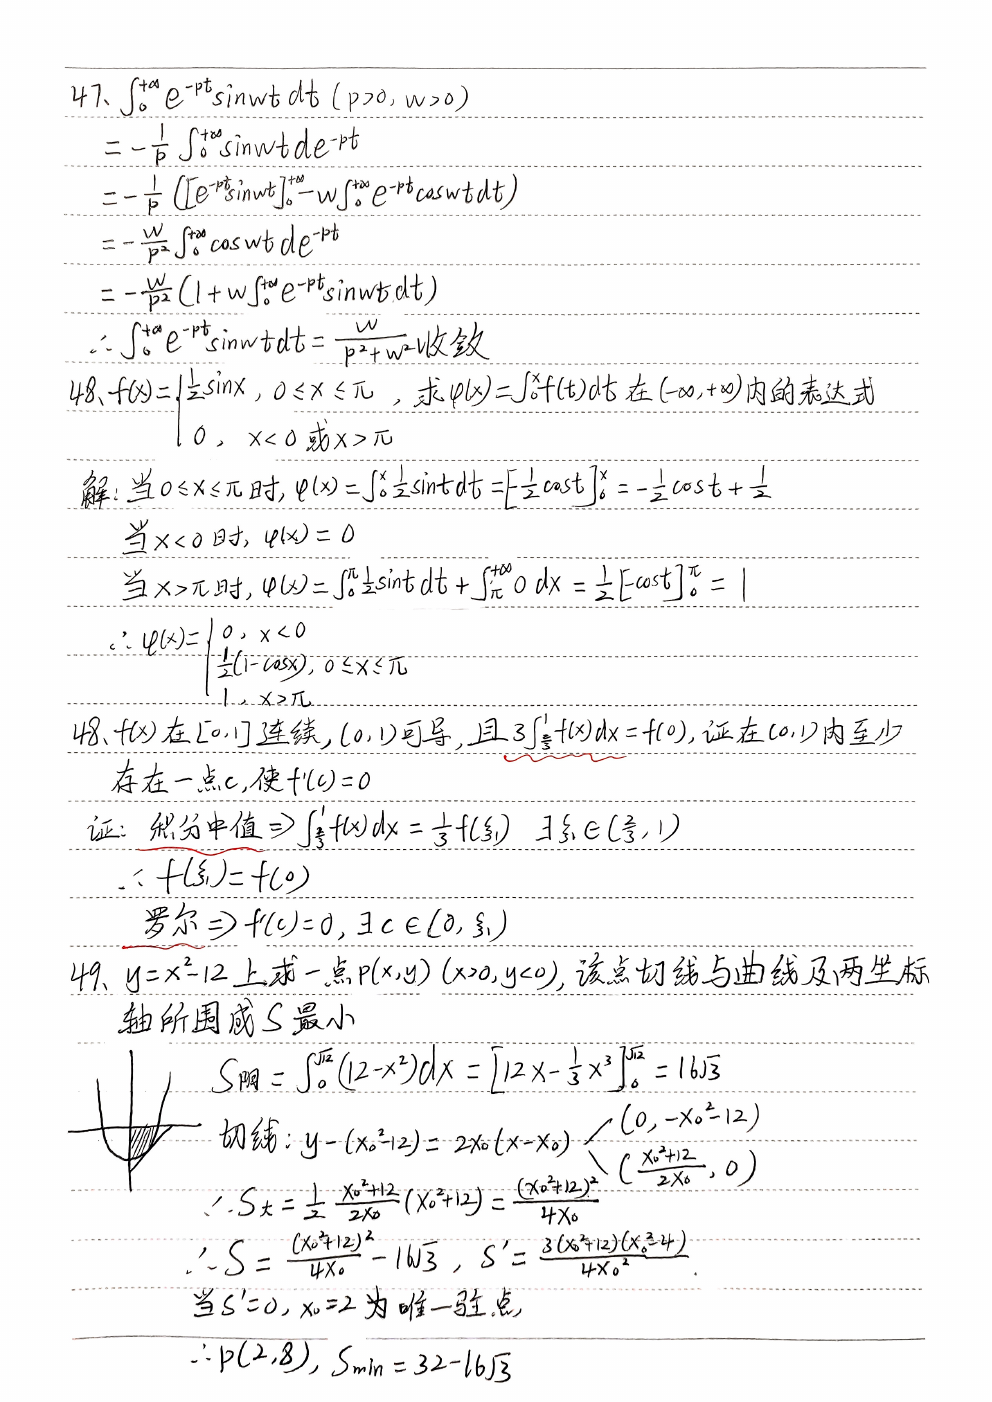 47、∫₀^{+∞} e^{-pt} sinwt dt (p>0, w>0)
= -1/p ∫₀^{+∞} sinwt d e^{-pt}
= -1/p ([e^{-pt} sinwt]₀^{+∞} - w∫₀^{+∞} e^{-pt} coswt dt)
= -w/p² ∫₀^{+∞} coswt d e^{-pt}
= -w/p² (1 + w∫₀^{+∞} e^{-pt} sinwt dt)
∴ ∫₀^{+∞} e^{-pt} sinwt dt = w/(p²+w²) 收敛
48、f(x) = { 1/2 sinx, 0≤x≤π , 求φ(x)=∫₀^x f(t)dt 在(-∞,+∞)内的表达式
0, x<0 或 x>π
解: 当0≤x≤π时, φ(x)=∫₀^x 1/2 sint dt = [-1/2 cost]₀^x = -1/2 cost + 1/2
当x<0时, φ(x)=0
当x>π时, φ(x)=∫₀^π 1/2 sint dt + ∫_π^{+∞} 0 dx = 1/2[-cost]₀^π = 1
∴ φ(x) = { 0, x<0
1/2(1-cosx), 0≤x≤π
1, x>π
48、f(x)在[0,1]连续, (0,1)可导, 且3∫_{2/3}^1 f(x)dx=f(0), 证在(0,1)内至少
存在一点c, 使f'(c)=0
证: 积分中值 ⇒ ∫_{2/3}^1 f(x)dx = 1/3 f(ξ₁) ∃ξ₁∈(2/3, 1)
∴ f(ξ₁)=f(0)
罗尔 ⇒ f'(c)=0, ∃c∈(0, ξ₁)
49、y=x²-12上求一点P(x,y) (x>0, y<0), 该点切线与曲线及两坐标
轴所围成S最小
S阴 = ∫₀^{√12} (12-x²)dx = [12x - 1/3 x³]₀^{√12} = 16√3
切线: y-(x₀²-12) = 2x₀(x-x₀) (0, -x₀²-12)
((x₀²+12)/2x₀, 0)
∴ S大 = 1/2 (x₀²+12)/2x₀ (x₀²+12) = (x₀²+12)²/4x₀
∴ S = (x₀²+12)²/4x₀ - 16√3, S' = 3(x₀²+12)(x₀²-4)/4x₀²
当S'=0, x₀=2为唯一驻点,
∴ p(2,8), Smin = 32-16√3